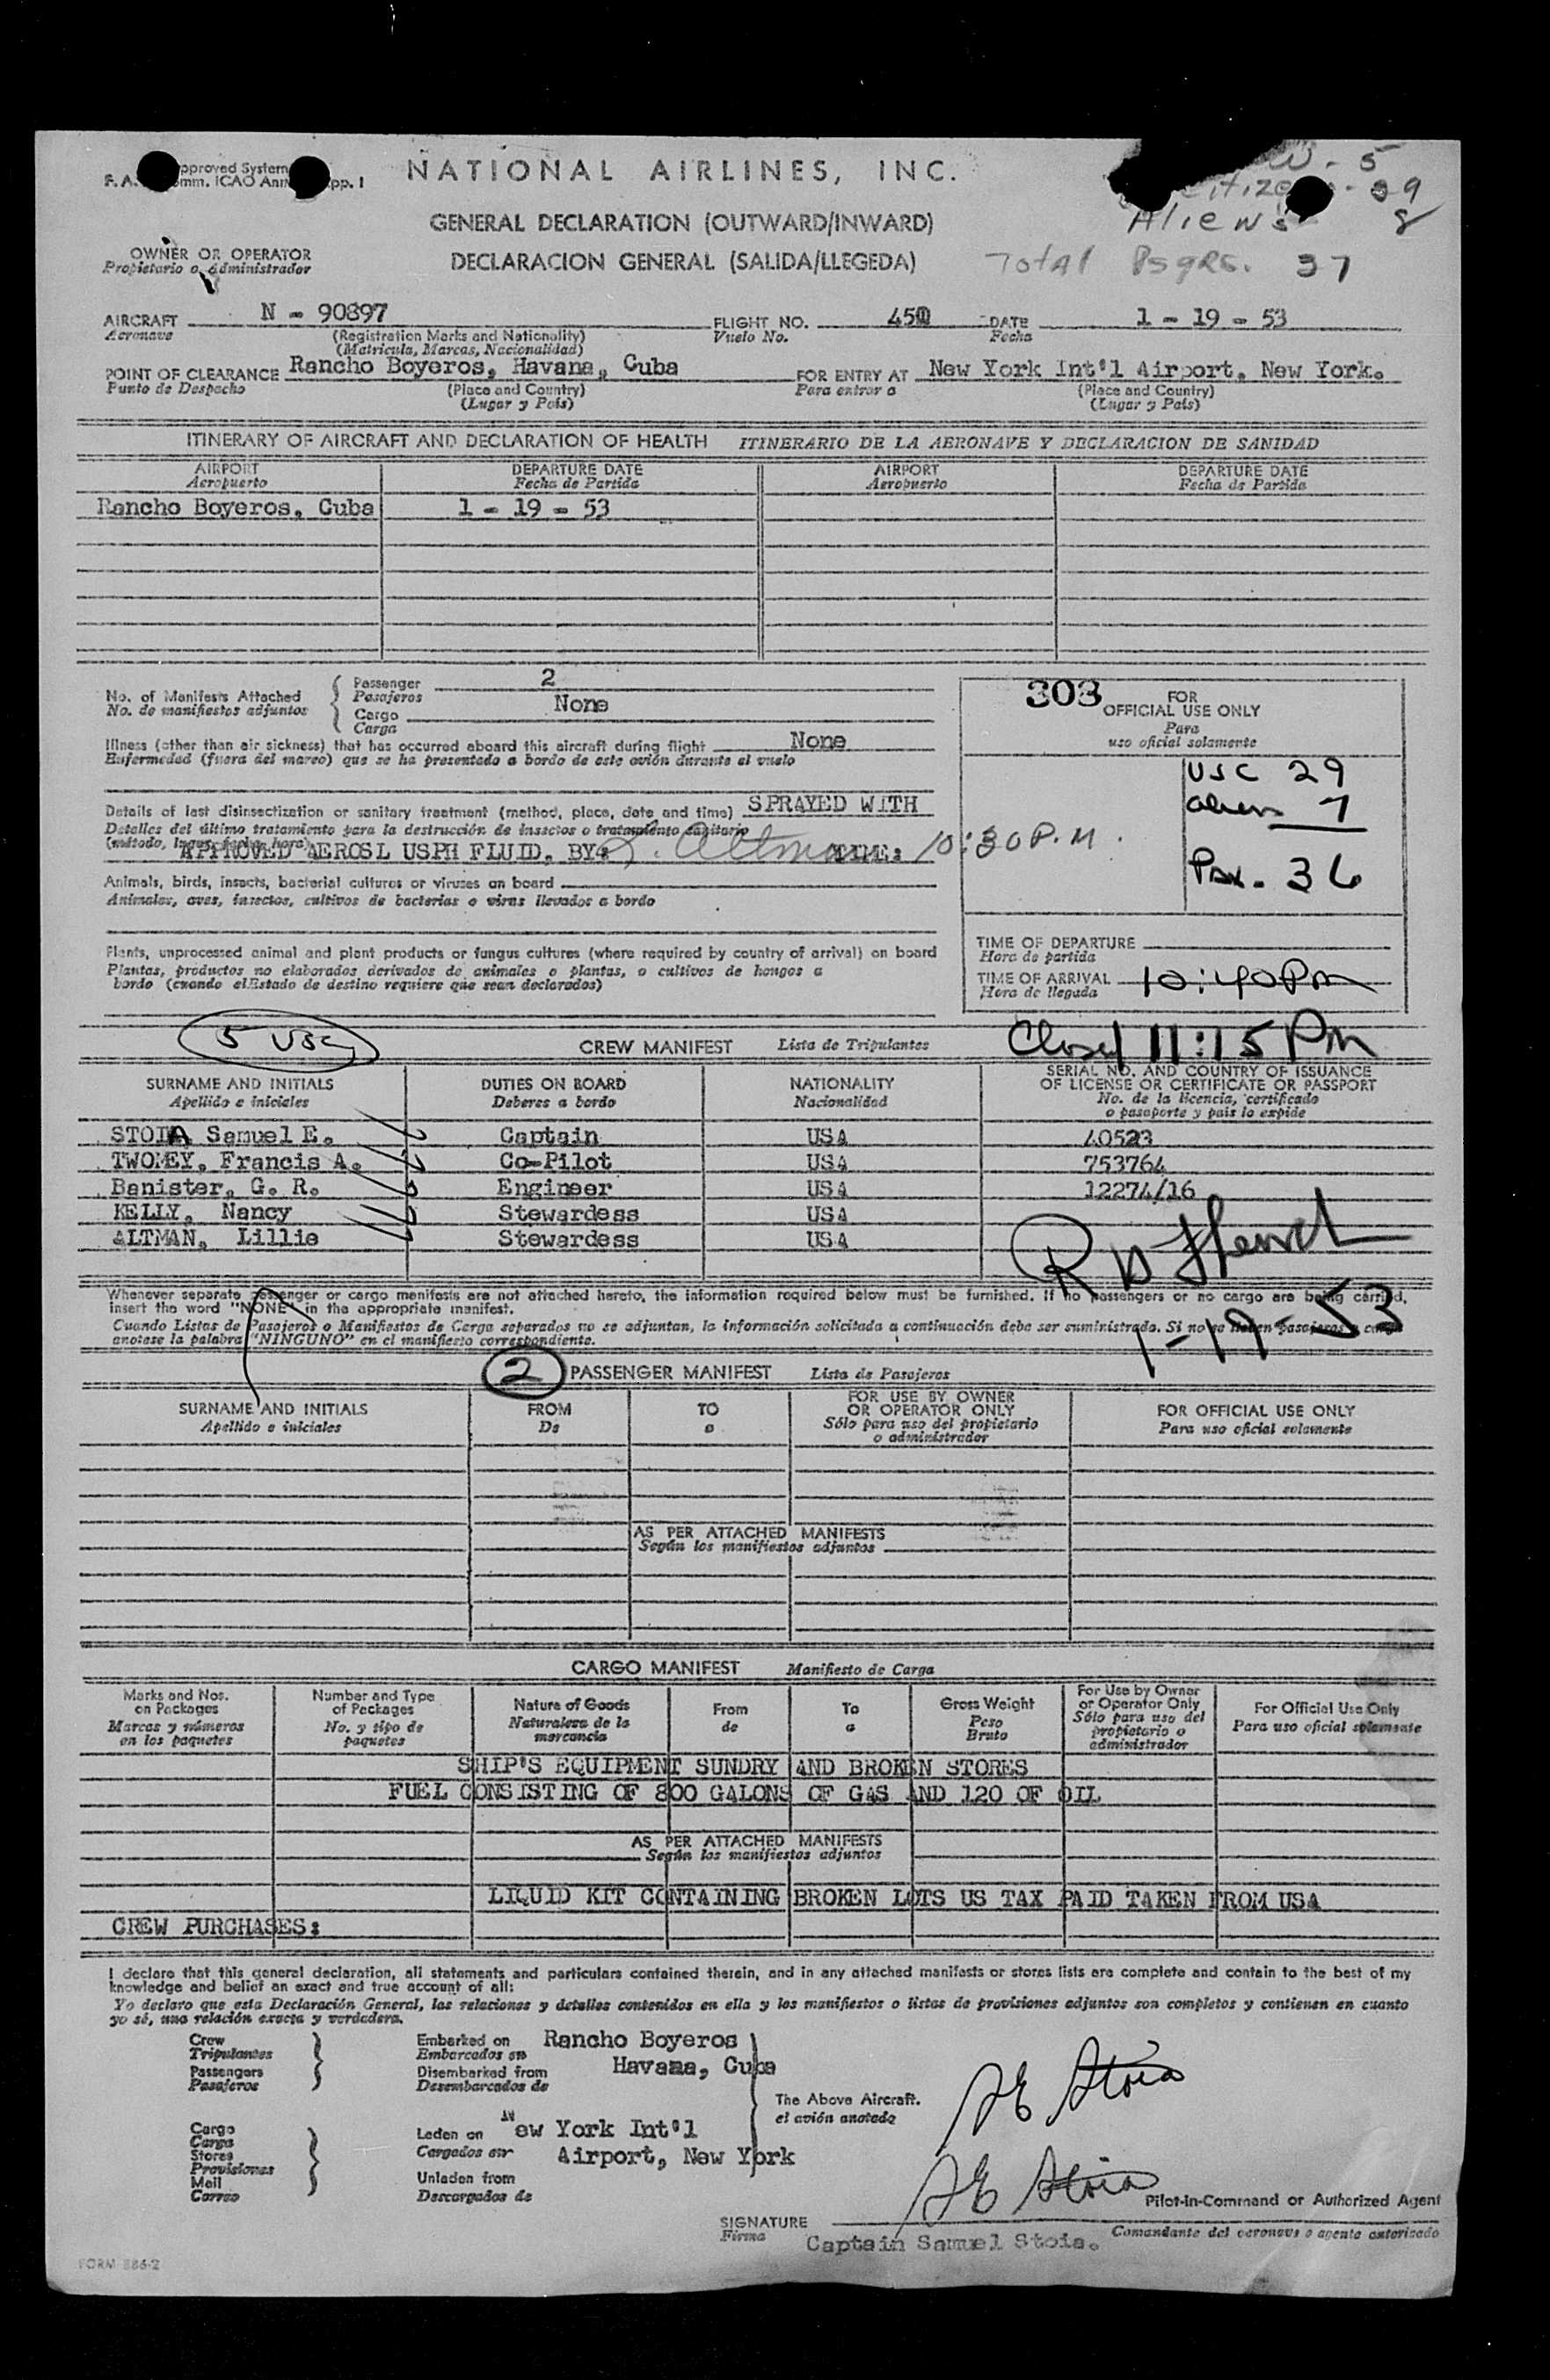 NATIONAL AIRLINES, INC.
pproved System
F. A. omm. ICAO Ann pp. 1
- 5
itize - 29
Aliens 8
Total Psgrs. 37
GENERAL DECLARATION (OUTWARD/INWARD)
DECLARACION GENERAL (SALIDA/LLEGEDA)
OWNER OR OPERATOR
Propietario o Administrador
AIRCRAFT N - 90897 FLIGHT NO. 450 DATE 1 - 19 - 53
Aeronave (Registration Marks and Nationality) Vuelo No. Fecha
(Matricula, Marcas, Nacionalidad)
POINT OF CLEARANCE Rancho Boyeros, Havana, Cuba FOR ENTRY AT New York Int'l Airport, New York.
Punto de Despacho (Place and Country) Para entrar a (Place and Country)
(Lugar y País) (Lugar y País)
ITINERARY OF AIRCRAFT AND DECLARATION OF HEALTH ITINERARIO DE LA AERONAVE Y DECLARACION DE SANIDAD
AIRPORT DEPARTURE DATE AIRPORT DEPARTURE DATE
Aeropuerto Fecha de Partida Aeropuerto Fecha de Partida
Rancho Boyeros, Cuba 1 - 19 - 53
No. of Manifests Attached
No. de manifiestos adjuntos
Passenger 2
Pasajeros
Cargo None
Carga
Illness (other than air sickness) that has occurred aboard this aircraft during flight None
Enfermedad (fuera del mareo) que se ha presentado a bordo de este avión durante el vuelo
Details of last disinsectization or sanitary treatment (method, place, date and time) SPRAYED WITH
Detalles del último tratamiento para la destrucción de insectos o tratamiento sanitario
(método, lugar, fecha, hora)
APPROVED AEROSL USPH FLUID. BY: L. Altman TIME: 10:30 P.M.
Animals, birds, insects, bacterial cultures or viruses on board
Animales, aves, insectos, cultivos de bacterias o virus llevados a bordo
Plants, unprocessed animal and plant products or fungus cultures (where required by country of arrival) on board
Plantas, productos no elaborados derivados de animales o plantas, o cultivos de hongos a
bordo (cuando elEstado de destino requiere que sean declarados)
303 FOR
OFFICIAL USE ONLY
Para
uso oficial solamente
USC 29
aliens 7
Pax. 36
TIME OF DEPARTURE
Hora de partida
TIME OF ARRIVAL 10:40 Pm
Hora de llegada
Closed 11:15 Pm
5 USC
CREW MANIFEST Lista de Tripulantes
SURNAME AND INITIALS DUTIES ON BOARD NATIONALITY SERIAL NO. AND COUNTRY OF ISSUANCE
OF LICENSE OR CERTIFICATE OR PASSPORT
Apellido e iniciales Deberes a bordo Nacionalidad No. de la licencia, certificado
o pasaporte y pais lo expide
STOIA Samuel E. Captain USA 40523
TWOMEY, Francis A. Co-Pilot USA 753764
Banister, G. R. Engineer USA 12274/16
KELLY, Nancy Stewardess USA
ALTMAN, Lillie Stewardess USA
1-19-53
Whenever separate passenger or cargo manifests are not attached hereto, the information required below must be furnished. If no passengers or no cargo are being carried,
insert the word "NONE" in the appropriate manifest.
Cuando Listas de Pasajeros o Manifiestos de Carga separados no se adjuntan, la información solicitada a continuación debe ser suministrada. Si no se lleven pasajeros o carga
anotase la palabra "NINGUNO" en el manifiesto correspondiente.
2 PASSENGER MANIFEST Lista de Pasajeros
SURNAME AND INITIALS FROM TO FOR USE BY OWNER FOR OFFICIAL USE ONLY
OR OPERATOR ONLY
Apellido e iniciales De a Sólo para uso del propietario Para uso oficial solamente
o administrador
AS PER ATTACHED MANIFESTS
Según los manifiestos adjuntos
CARGO MANIFEST Manifiesto de Carga
Marks and Nos. on Packages Number and Type of Packages Nature of Goods From To Gross Weight For Use by Owner or Operator Only For Official Use Only
Marcas y números en los paquetes No. y tipo de paquetes Naturaleza de la mercancia de a Peso Bruto Sólo para uso del propietario o administrador Para uso oficial solamente
SHIP'S EQUIPMENT SUNDRY AND BROKEN STORES
FUEL CONSISTING OF 800 GALONS OF GAS AND 120 OF OIL
AS PER ATTACHED MANIFESTS
Según los manifiestos adjuntos
LIQUID KIT CONTAINING BROKEN LOTS US TAX PAID TAKEN FROM USA
CREW PURCHASES:
I declare that this general declaration, all statements and particulars contained therein, and in any attached manifests or stores lists are complete and contain to the best of my
knowledge and belief an exact and true account of all:
Yo declaro que esta Declaración General, las relaciones y detalles contenidos en ella y los manifiestos o listas de provisiones adjuntos son completos y contienen en cuanto
yo sé, una relación exacta y verdadera.
Crew Embarked on Rancho Boyeros
Tripulantes Embarcados en
Passengers Disembarked from Havana, Cuba
Pasajeros Desembarcados de
The Above Aircraft.
el avión anotado
S E Stoia
Cargo Laden on New York Int'l
Carga Cargados en Airport, New York
Stores
Provisiones
Mail Unladen from
Correo Descargados de
S E Stoia
Pilot-in-Command or Authorized Agent
SIGNATURE
Firma Captain Samuel Stoia. Comandante del aeronave o agente autorizado
FORM 886-2